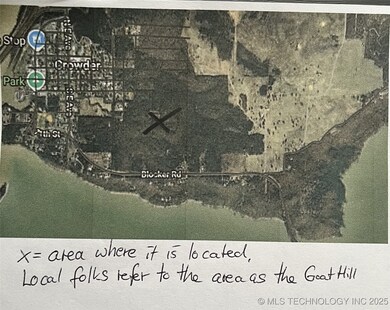 Stop
Crowder
Park
7th St
Blocker Rd
X
X = area where it is located,
Local folks refer to the area as the Goat Hill
© MLS TECHNOLOGY INC 2025